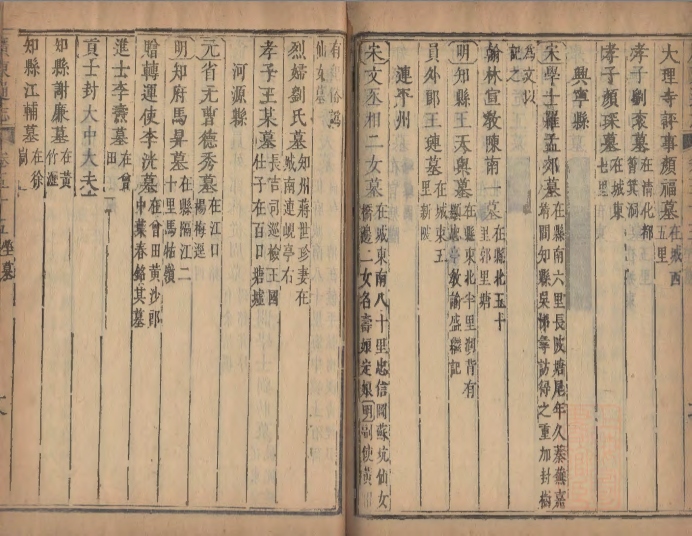 大理寺評事顏福墓在城西五里
孝子劉宷墓在清化都箬箕洞
孝子顏球墓在城東七里
興寧縣
宋學士羅孟郊墓在縣南六里長陂塘尾年久蓁蕪嘉靖間知縣吳悌訪得之重加封樹
為文以記之
翰林宣教陳南一墓在縣北五十里鄒里塘
明知縣王天與墓在縣東北半里洞背有教諭盛繼記
員外郎王璉墓在城東王里新陂
連平州
宋文丞相二女墓在城東南八十里忠信岡蘇坑仙女橋邊二女名壽娘定娘明副使黃
有
仙女墓
烈婦劉氏墓知州蔣世珍妻在城南連峴亭右
孝子王某墓長吉司巡檢王國仕子在百口塘墟
河源縣
元省元曹德秀墓在江口楊梅逕
明知府馬昇墓在縣隔江二十里馬牯嶺
贈轉運使李洸墓在曾田黃沙郎中葉春銘其墓
進士李燾墓在曾田
貢士封大中大夫
知縣謝廉墓在黃竹瀝
知縣江輔墓在徐